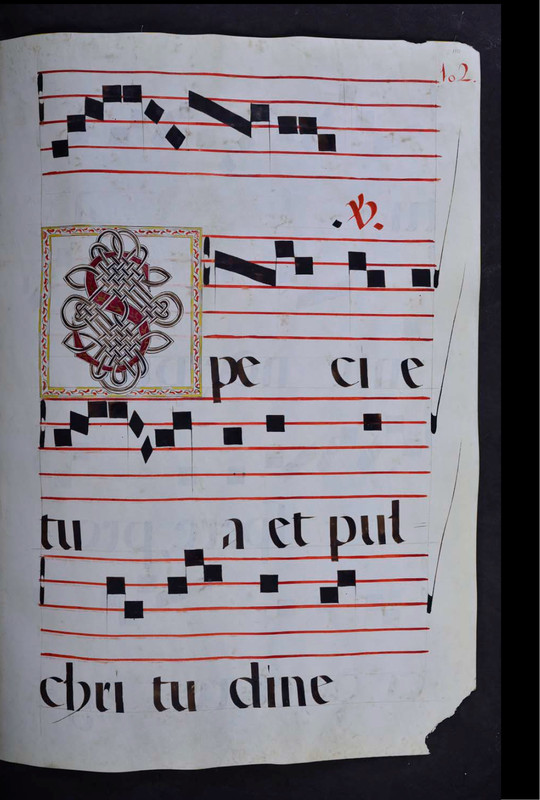 102.
.V.
Spe cie
tu a et pul
chri tu dine